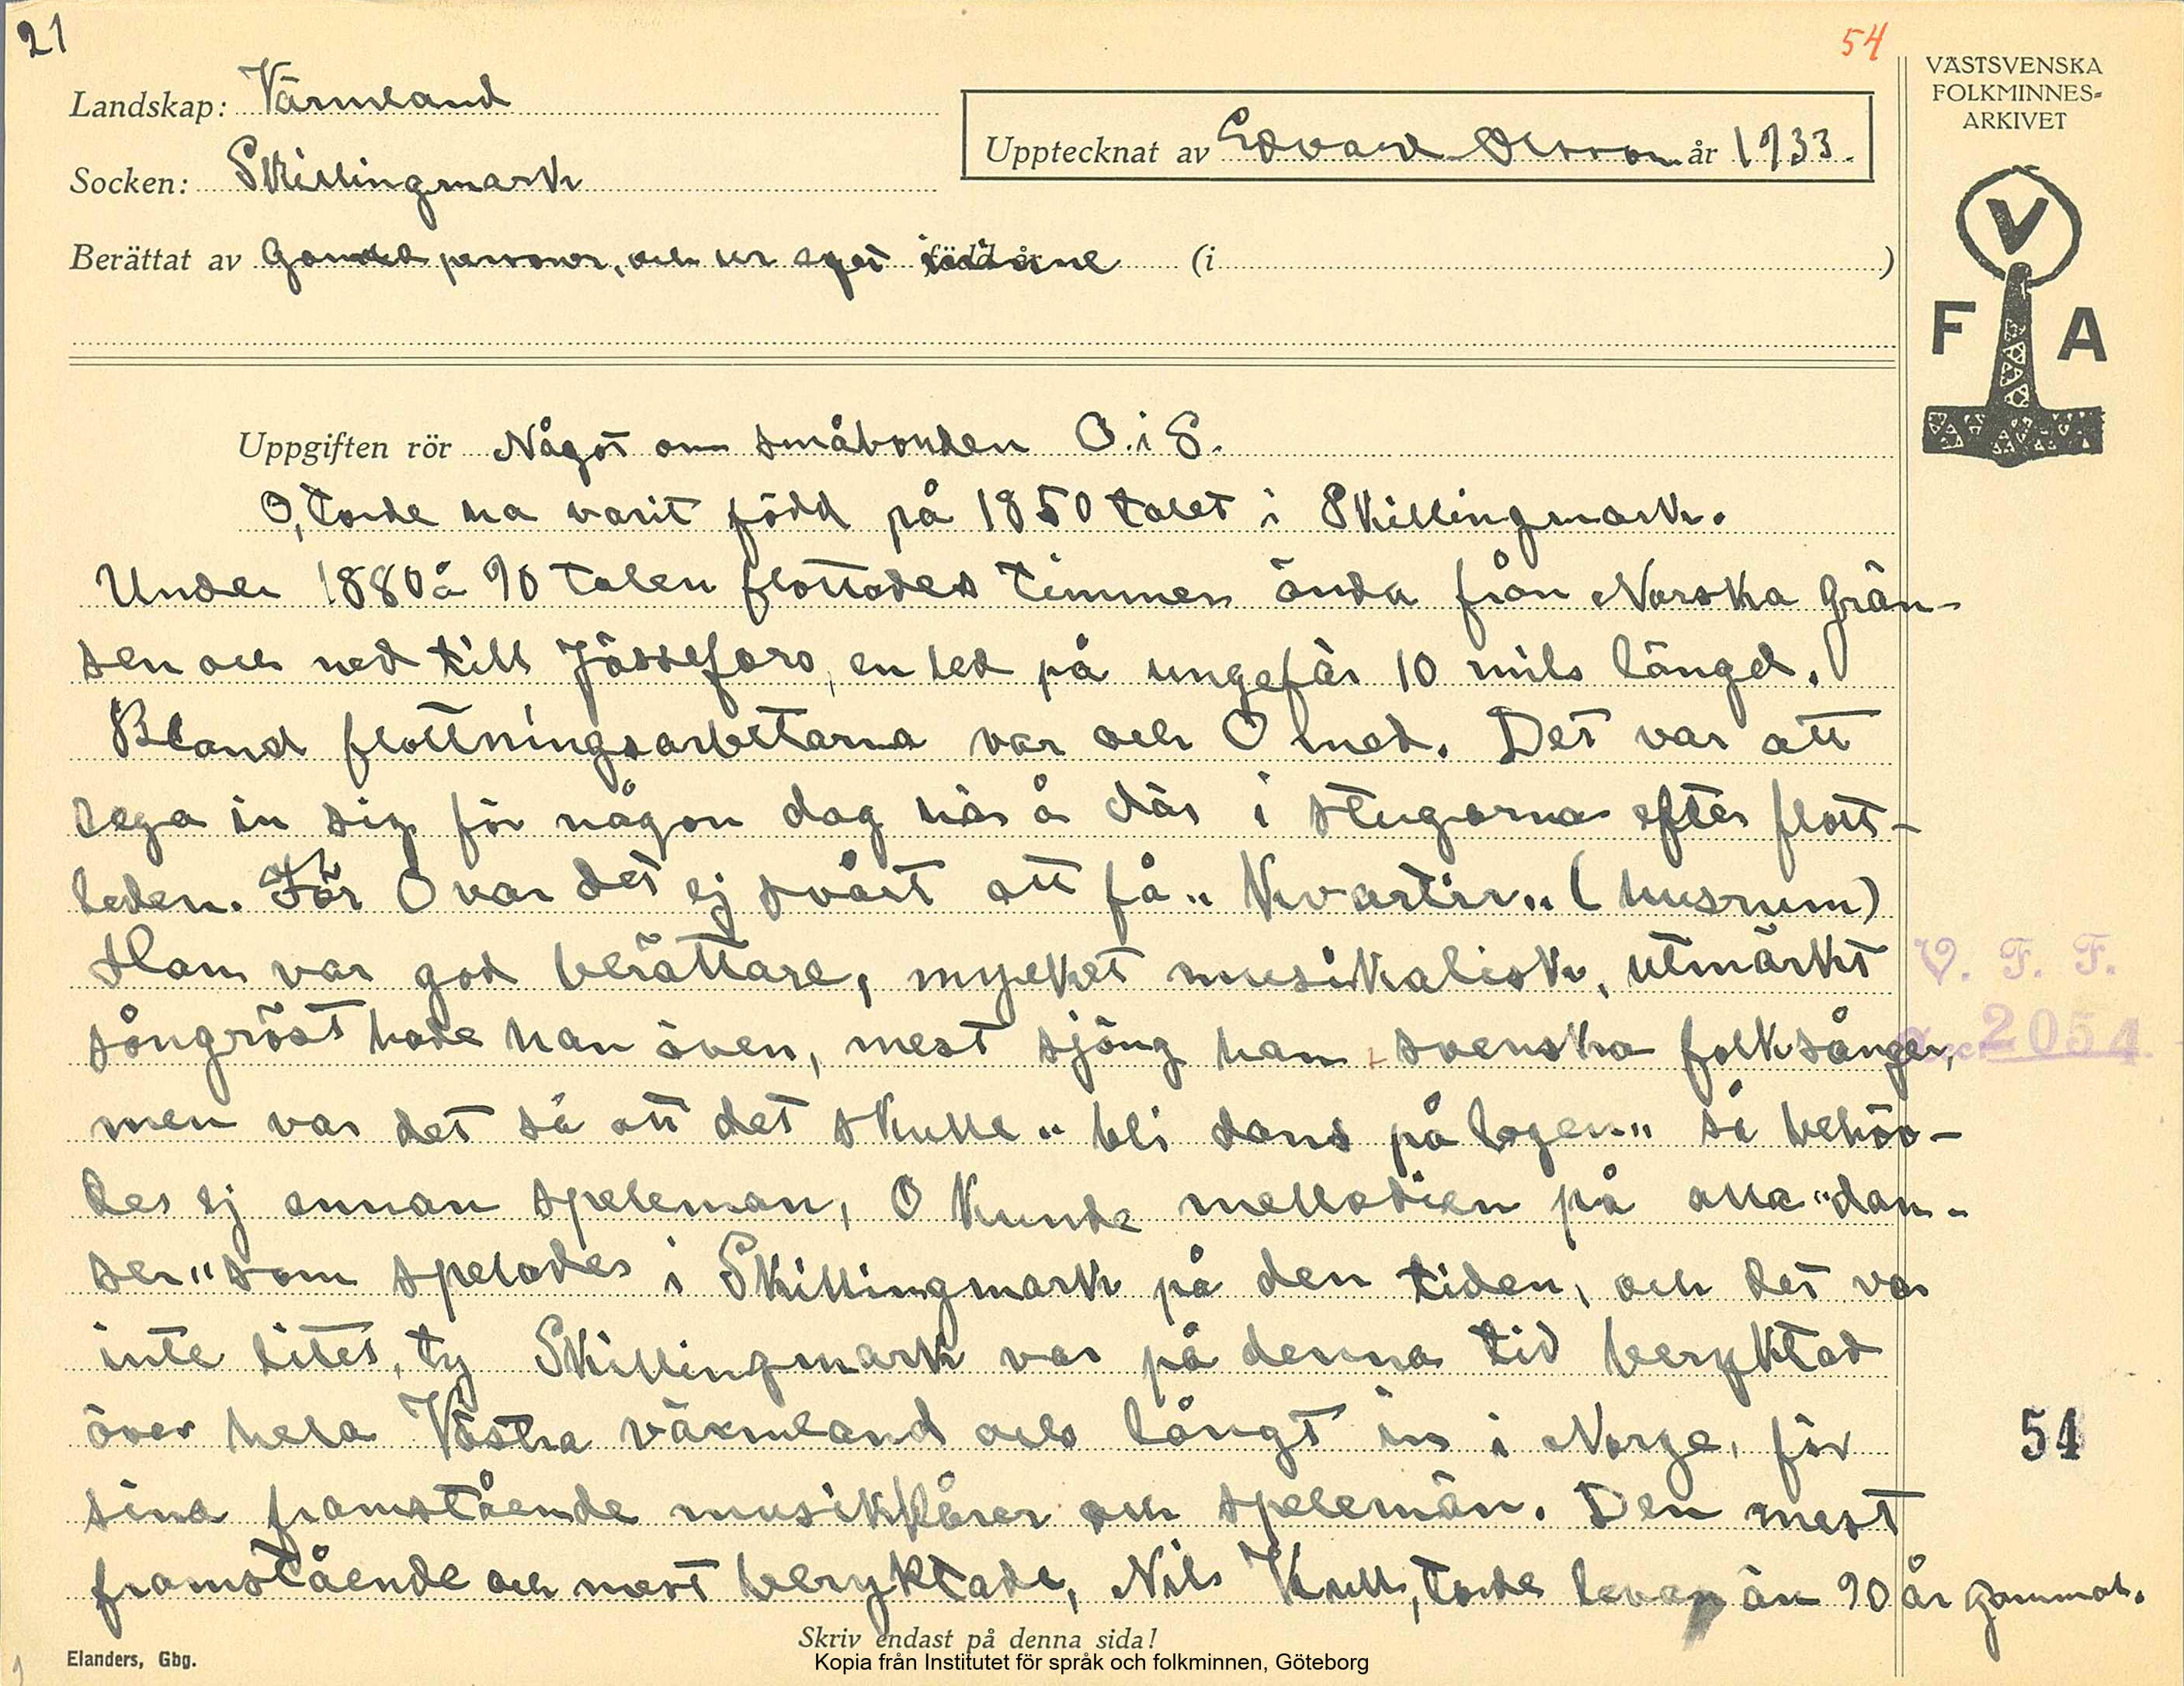 21
54
Landskap: Värmland
Socken: Skillingmark
Upptecknat av Edvard Olsson år 1933.
Berättat av Gamla personer, och ur eget minne (i )
VÄSTSVENSKA
FOLKMINNES-
ARKIVET
V
F A
Uppgiften rör Något om småbonden O. i S.
O, torde ha varit född på 1850 talet i Skillingmark.
Under 1880 å 90 talen flottades timmer ända från Norska grän-
sen och ned till Jössefors, en led på ungefär 10 mils längd.
Bland flottningsarbetarna var och O med. Det var att
lega in sig för någon dag här å där i stugorna efter flott-
leden. För O var det ej svårt att få "kvartir" (husrum)
Han var god berättare, mycket musikalisk, utmärkt
sångröst hade han även, mest sjöng han svenska folksånger,
men var det så att det skulle "bli dans på logen" så behöv-
des ej annan speleman, O kunde mellodien på alla "dan-
ser" som spelades i Skillingmark på den tiden, och det var
inte litet, ty Skillingmark var på denna tid beryktad
över hela Västra värmland och långt in i Norge, för
sina framstående musikkårer och spelemän. Den mest
framstående och mest beryktade, Nils Krull, torde leva än 90 år gammal.
V. F. F.
Acc. 2054
54
Skriv endast på denna sida!
Elanders, Gbg.
Kopia från Institutet för språk och folkminnen, Göteborg